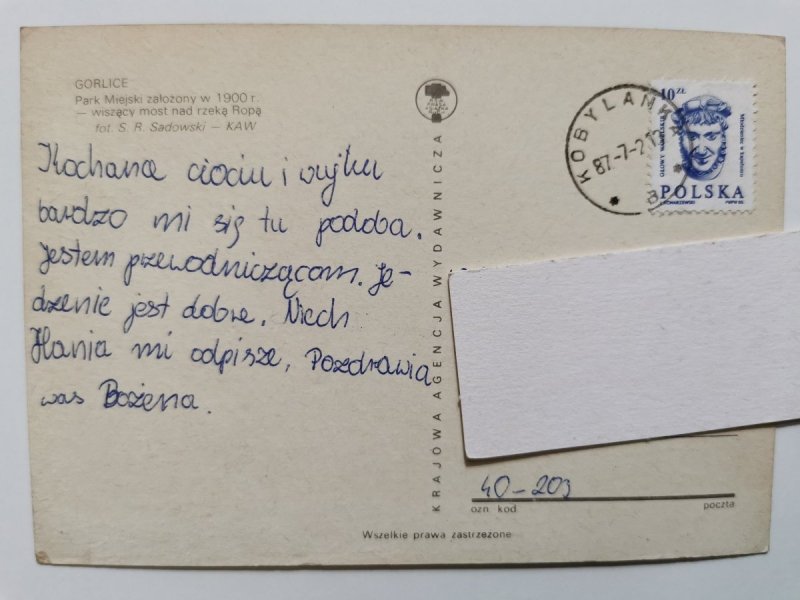 GORLICE
Park Miejski założony w 1900 r.
— wiszący most nad rzeką Ropą
fot. S. R. Sadowski — KAW
Kochana ciociu i wujku
bardzo mi się tu podoba.
Jestem przewodniczącom. Je-
dzenie jest dobre. Niech
Hania mi odpisze, Pozdrawia
was Bożena.
KRAJOWA AGENCJA WYDAWNICZA
KOBYLANKA
87-7-2
10 ZŁ
GŁOWY WAWELSKIE
Młodzieniec w kapeluszu
POLSKA
40-203
ozn kod
poczta
Wszelkie prawa zastrzeżone